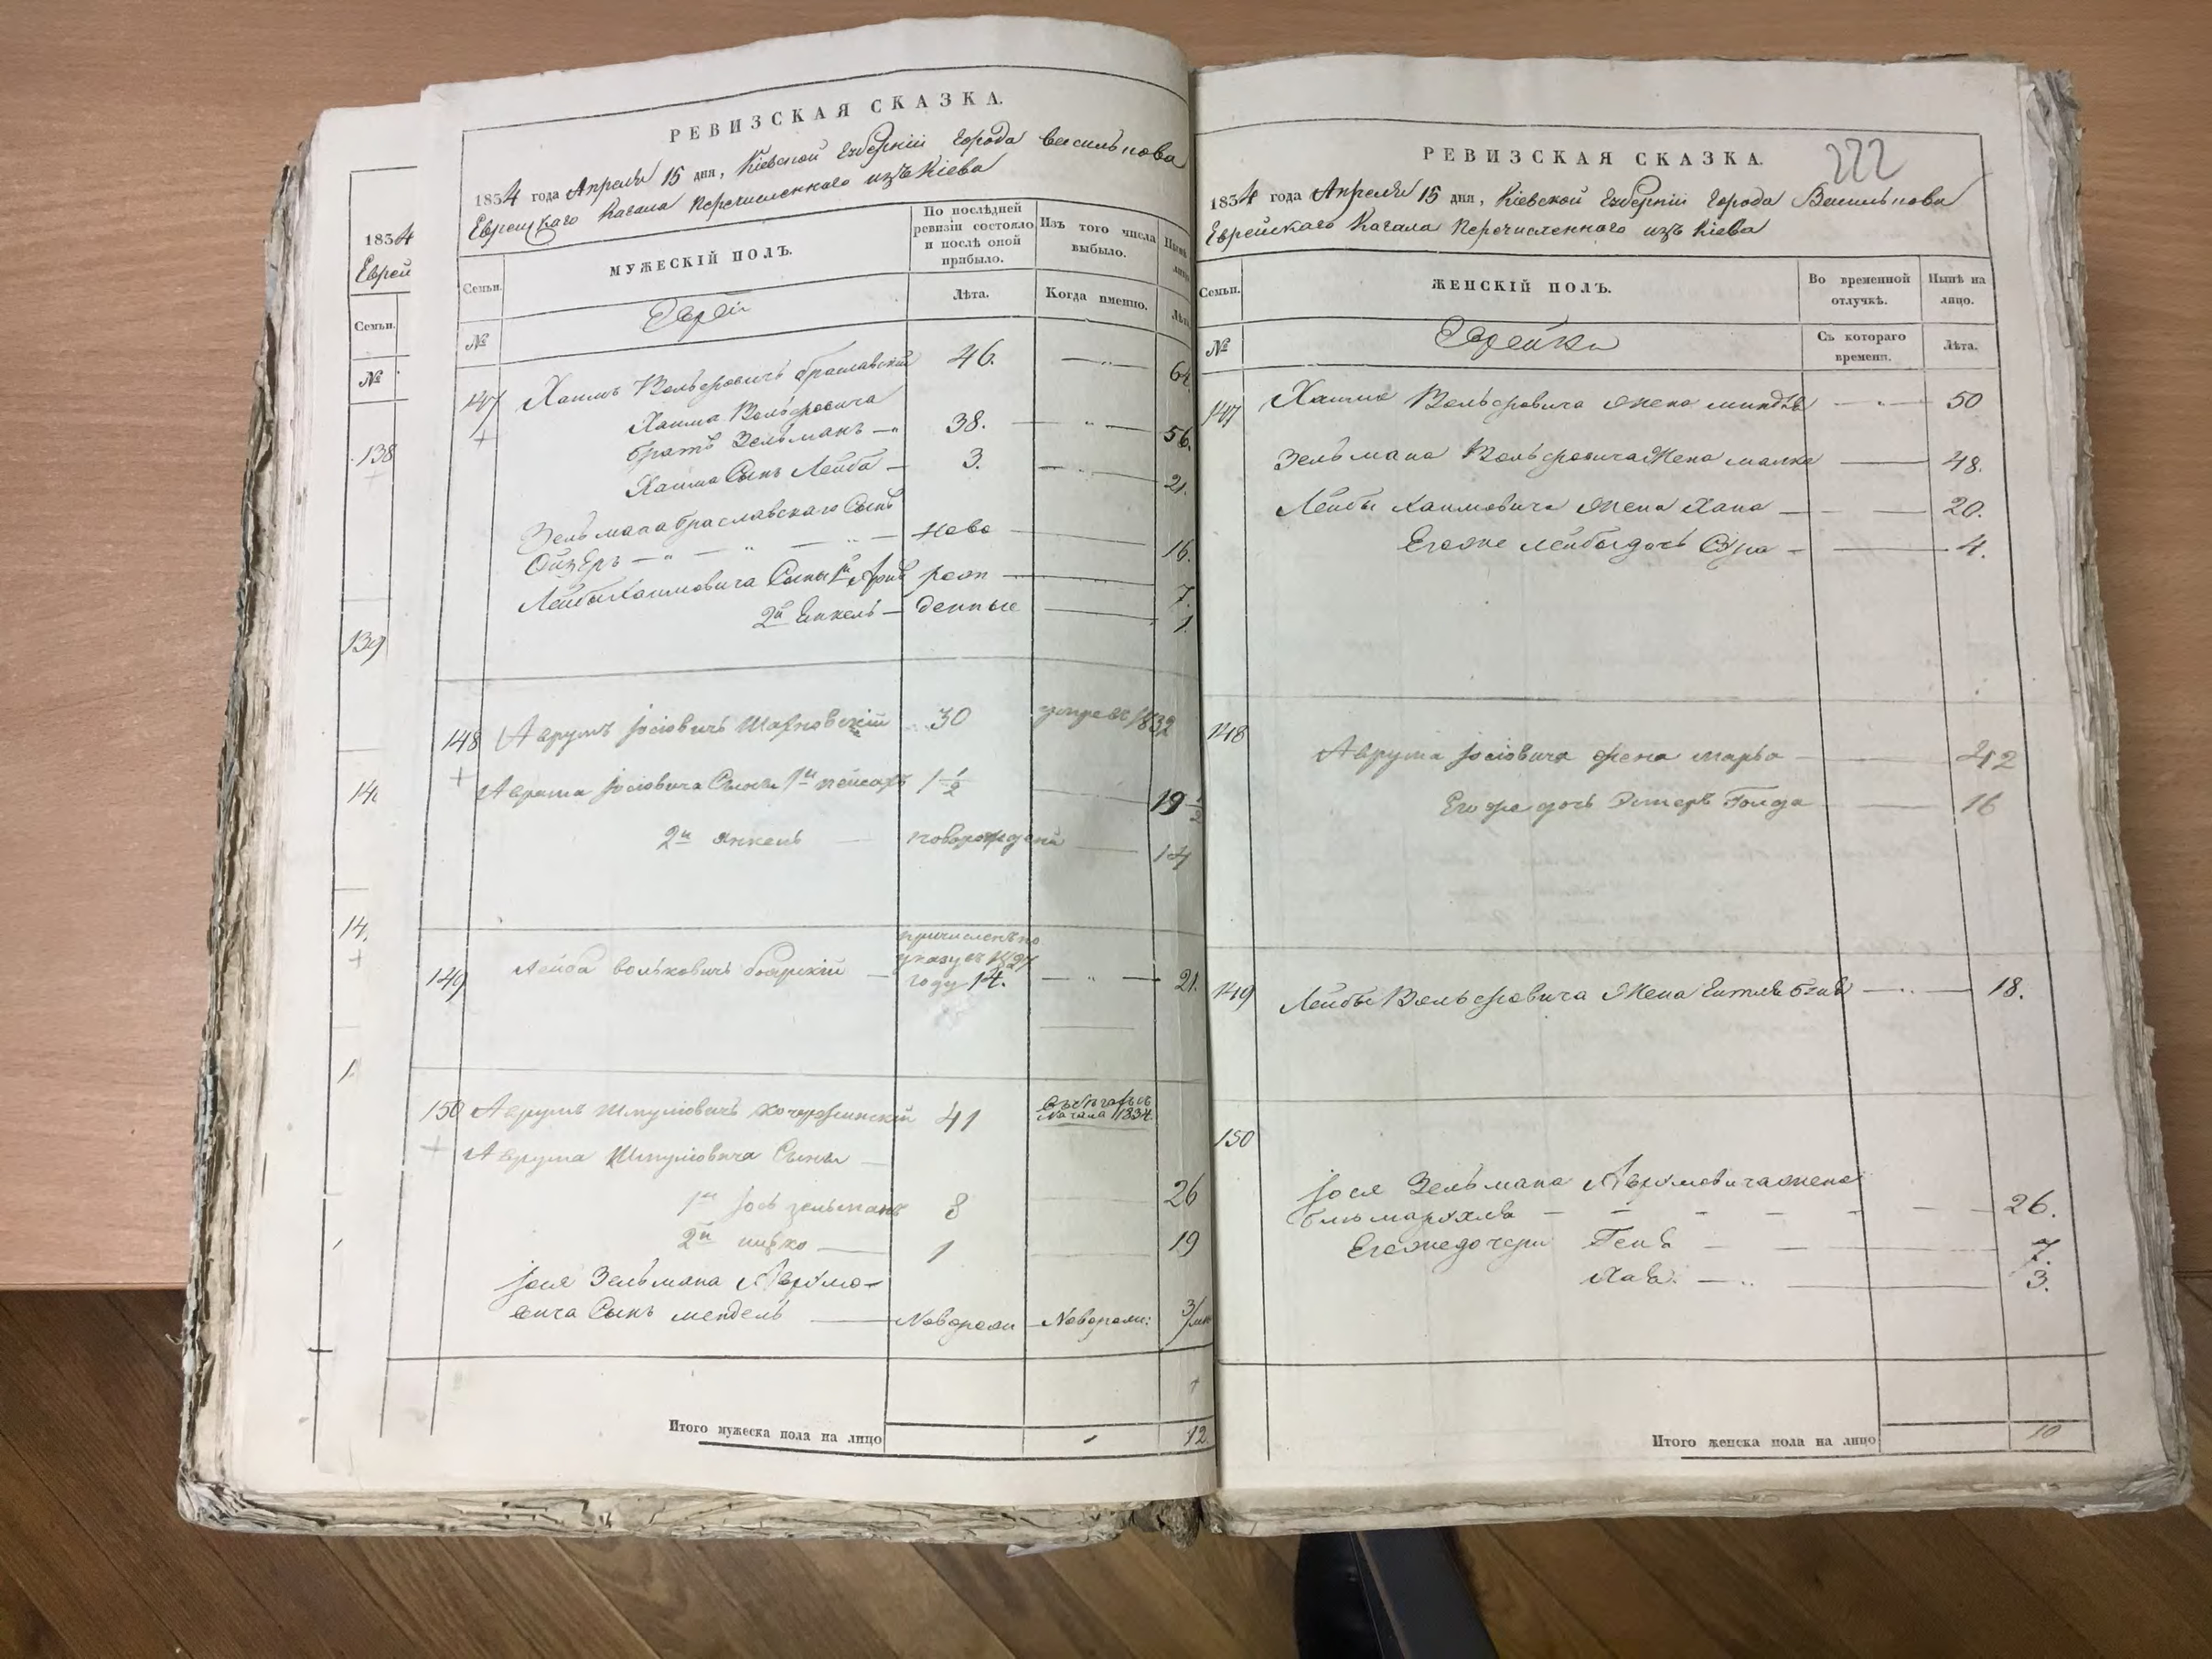 1834
Еврей
Семьи.
№
138
139
14
14.
1
РЕВИЗСКАЯ СКАЗКА.
1834 года Апреля 15 дня, Кіевской Губерніи Города Василькова
Еврейскаго Кагала Перечисленнаго изъ Кіева
Семьи.
МУЖЕСКІЙ ПОЛЪ.
По послѣдней ревизіи состояло и послѣ оной прибыло.
Изъ того числа выбыло.
№
Еврей
Лѣта.
Когда именно.
147 Хаимъ Вольфовичъ Браславскій 46. — 64.
Хаима Вольфовича
братъ Зельманъ — 38. — 56.
Хаима Сынъ Лейба — 3. — 21.
Зельмана Браславскаго Сынъ
Ойзеръ — ново — 16.
Лейбы Хаимовича Сыны 1й рож — 7.
2й Янкель — денные — 1.
148 Аврумъ Іосіовичъ 30 умре въ 1832
Аврума Іосіовича Сыны 1й Пейсахъ 1 1/2 — 19 1/2
2й Янкель — новорожденый — 14
149 Лейба Вольковичъ Боярскій — причисленъ по указу въ 1827 году 14. — 21.
150 Аврумъ Шмуліовичъ 41 1834.
Аврума Шмуліовича Сыны —
1й Іось Зельманъ 8 26
2й 1 19
Іося Зельмана Аврумо-
вича Сынъ Мендель — Новорож Новорож: 3/м
Итого мужеска пола на лицо 12.
222
РЕВИЗСКАЯ СКАЗКА.
1834 года Апреля 15 дня, Кіевской Губерніи Города Василькова
Еврейскаго Кагала Перечисленнаго изъ Кіева
Семьи.
ЖЕНСКІЙ ПОЛЪ.
Во временной отлучкѣ.
Нынѣ на лицо.
№
Еврейки
Съ котораго времени.
Лѣта.
147 Хаима Вольфовича Жена Миндля — 50
Зельмана Вольфовича Жена Малка — 48.
Лейбы Хаимовича Жена Хана — 20.
Егоже Лейбы дочь Сура — 4.
148
Аврума Іосіовича жена Марья — 42
Его же дочь Эстеръ Голда 16
149 Лейбы Вольфовича Жена — 18.
150
Іося Зельмана Аврумовича жена
— 26.
Егоже дочери Геня — 7.
Хава. — 3.
Итого женска пола на лицо 10